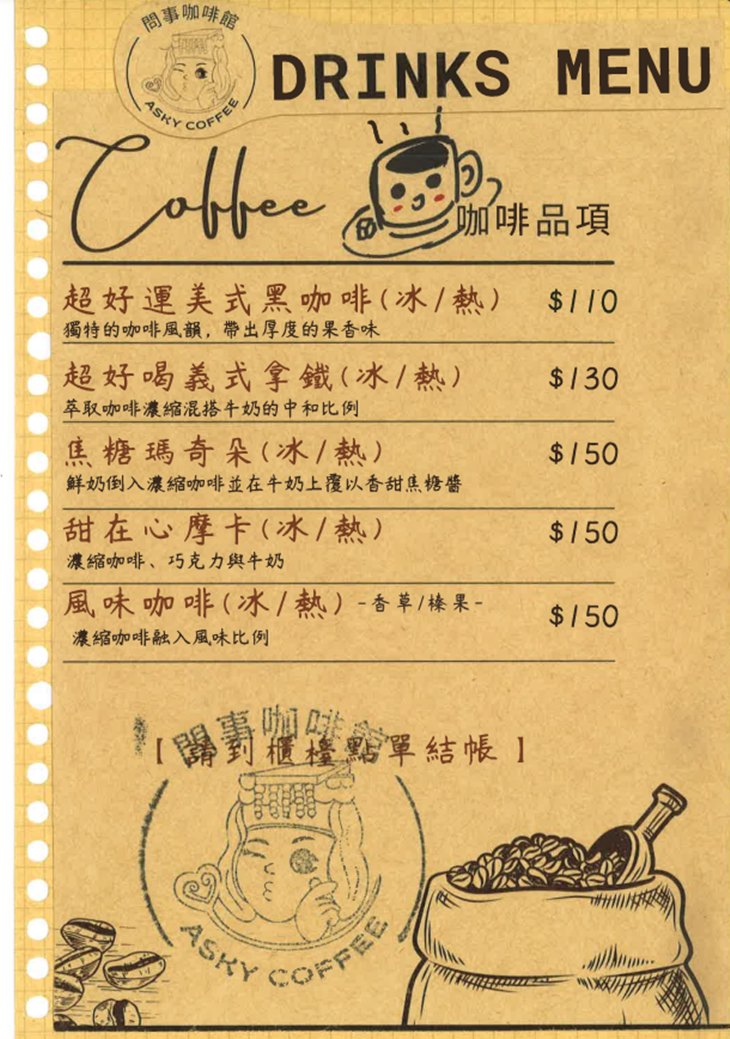 問事咖啡館
ASKY COFFEE
DRINKS MENU
Coffee
咖啡品項
超好運美式黑咖啡(冰/熱) $110
獨特的咖啡風韻，帶出厚度的果香味
超好喝義式拿鐵(冰/熱) $130
萃取咖啡濃縮混搭牛奶的中和比例
焦糖瑪奇朵(冰/熱) $150
鮮奶倒入濃縮咖啡並在牛奶上覆以香甜焦糖醬
甜在心摩卡(冰/熱) $150
濃縮咖啡、巧克力與牛奶
風味咖啡(冰/熱) -香草/榛果- $150
濃縮咖啡融入風味比例
問事咖啡館
【 請到櫃檯點單結帳 】
ASKY COFFEE